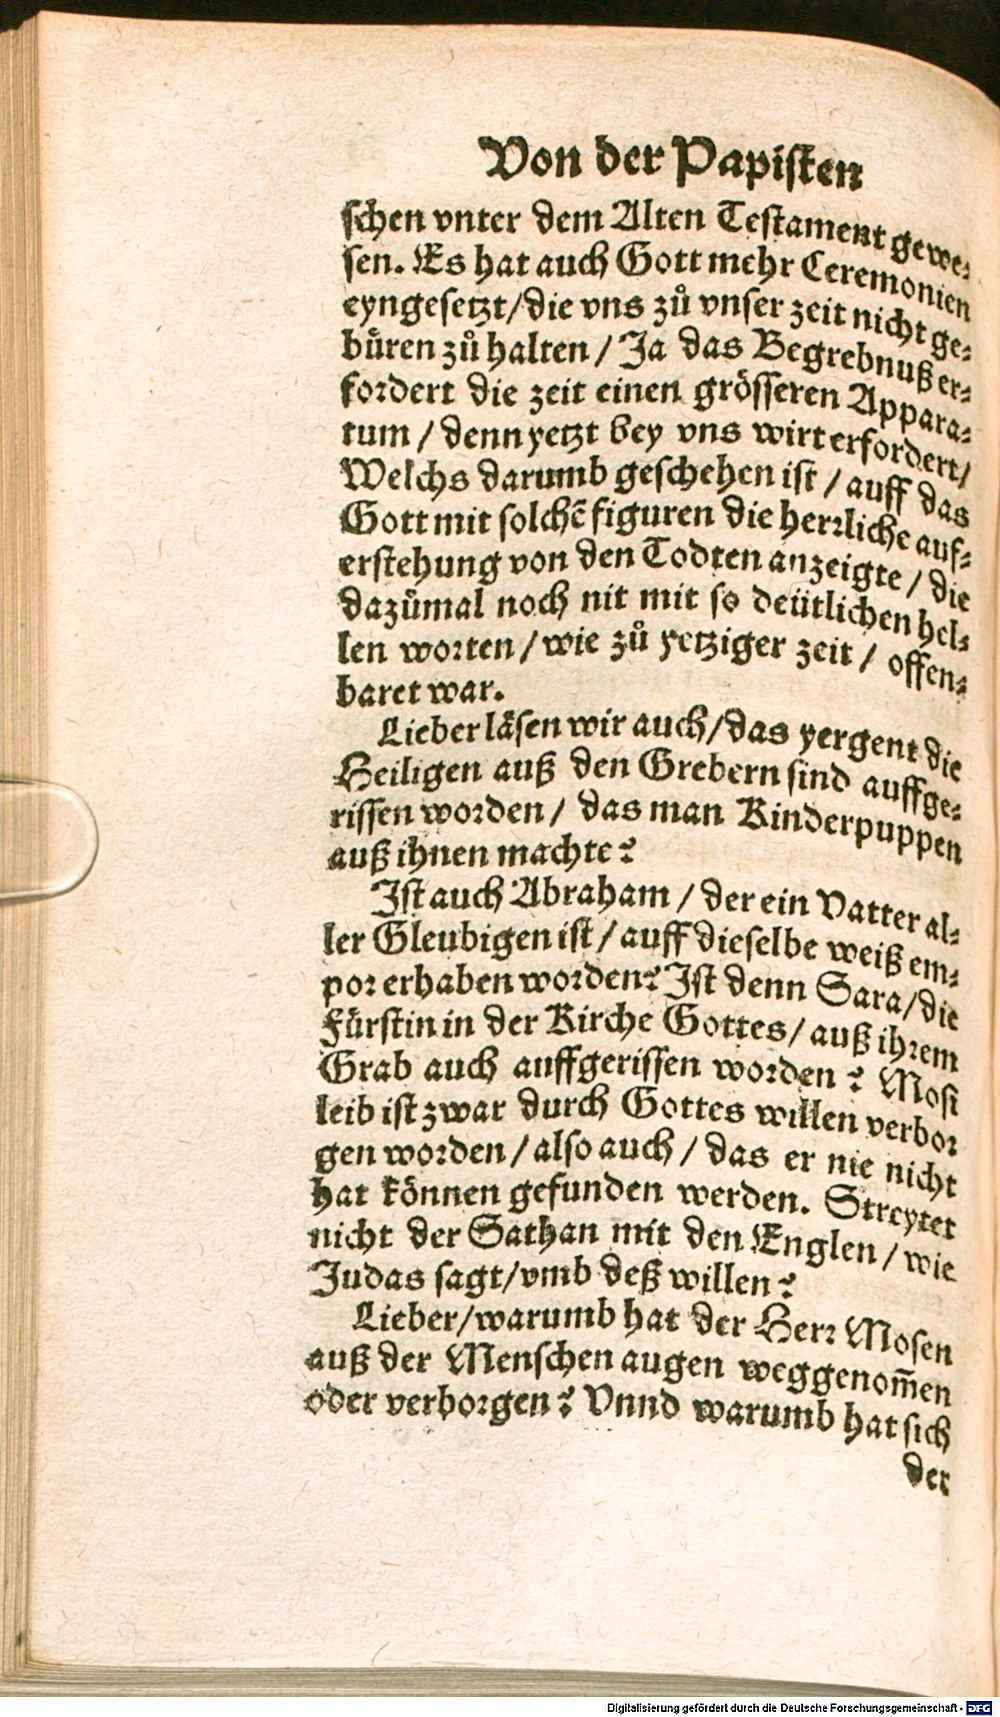 Von der Papisten
schen vnter dem Alten Testament gewe-
sen. Es hat auch Gott mehr Ceremonien
eyngesetzt/die vns zů vnser zeit nicht ge-
bůren zů halten / Ja das Begrebnuß er-
fordert die zeit einen grösseren Appara-
tum / denn yetzt bey vns wirt erfordert/
Welchs darumb geschehen ist / auff das
Gott mit solchẽ figuren die herrliche auf-
erstehung von den Todten anzeigte / die
dazůmal noch nit mit so deütlichen hel-
len worten / wie zů yetziger zeit / offen-
baret war.
Lieber läsen wir auch/das yergent die
Heiligen auß den Grebern sind auffge-
rissen worden / das man Kinderpuppen
auß ihnen machte?
Ist auch Abraham / der ein Vatter al-
ler Gleubigen ist / auff dieselbe weiß em-
por erhaben worden? Ist denn Sara/die
Fürstin in der Kirche Gottes/ auß ihrem
Grab auch auffgerissen worden? Mosi
leib ist zwar durch Gottes willen verbor
gen worden / also auch / das er nie nicht
hat können gefunden werden. Streytet
nicht der Sathan mit den Englen / wie
Judas sagt/vmb deß willen?
Lieber/warumb hat der Herr Mosen
auß der Menschen augen weggenom̃en
oder verborgen? Vnnd warumb hat sich
der
Digitalisierung gefördert durch die Deutsche Forschungsgemeinschaft - DFG